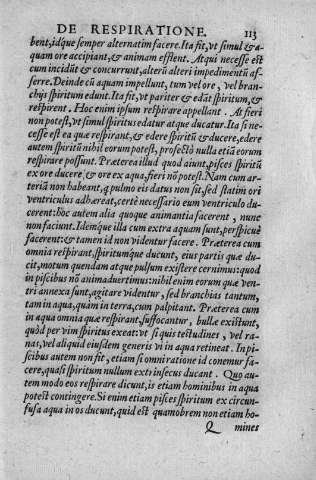 DE RESPIRATIONE. 113
bent, idque semper alternatim facere. Ita fit, vt simul & a-
quam ore accipiant, & animam efflent. Atqui necesse est
cum incidūt & concurrunt, alterū alteri impedimentū af-
ferre. Deinde cū aquam impellunt, tum vel ore, vel bran-
chijs spiritum edunt. Ita fit, vt pariter & edāt spiritum, &
respirent. Hoc enim ipsum respirare appellant. At fieri
non potest, vt simul spiritus edatur atque ducatur. Ita si ne-
cesse est ea quæ respirant, & edere spiritū & ducere, edere
autem spiritū nihil eorum potest, profectò nulla etiā eorum
respirare possunt. Præterea illud quod aiunt, pisces spiritū
ex ore ducere & ore ex aqua, fieri nō potest. Nam cum ar-
teriā non habeant, q pulmo eis datus non sit, sed statim ori
ventriculus adhæreat, certè necessario eum ventriculo du-
cerent: hoc autem alia quoque animantia facerent, nunc
non faciunt. Idemque illa cum extra aquam sunt, perspicuè
facerent: & tamen id non videntur facere. Præterea cum
omnia respirant, spiritumque ducunt, eius partis quæ du-
cit, motum quendam atque pulsum existere cernimus: quod
in piscibus nō animaduertimus: nihil enim eorum quæ ven-
tri annexa sunt, agitare videntur, sed branchias tantum,
tam in aqua, quam in terra, cum palpitant. Præterea cum
in aqua omnia quæ respirant, suffocantur, bullæ existunt,
quòd per vim spiritus exeat: vt si quis testudines, vel ra-
nas, vel aliquid eiusdem generis vi in aqua retineat. In pi-
scibus autem non fit, etiam si omni ratione id conemur fa-
cere, quasi spiritum nullum extrinsecus ducant. Quo au-
tem modo eos respirare dicunt, is etiam hominibus in aqua
potest contingere. Si enim etiam pisces spiritum ex circun-
fusa aqua in os ducunt, quid est quamobrem non etiam ho-
Q mines